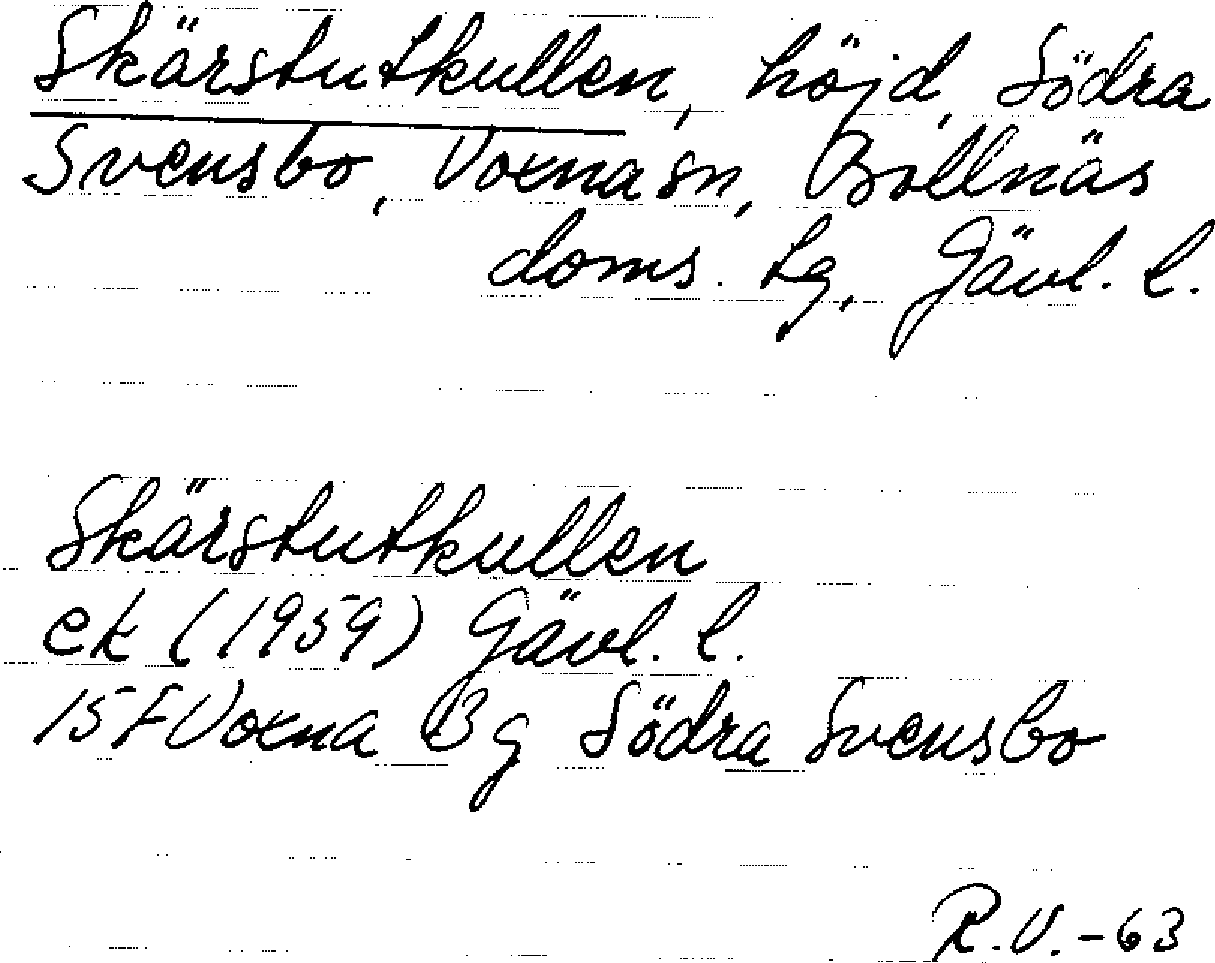 Skärstutkullen, höjd, Södra
Svensbo, Voxna sn, Bollnäs
doms. tg, Gävl. l.
Skärstutkullen
ek (1959) Gävl. l.
15F Voxna Bg Södra Svensbo
R.V.-63